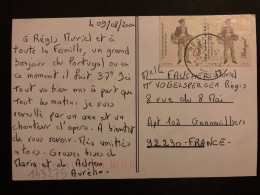 le 09/08/200
à Régis Muriel et à
toute la famille, un grand
bonjour du Portugal ou en
ce moment il fait 37° Si
tout va bien mis à part que
tout les matins je suis
reveillé par un ane et un
chanteur d'opéra. A bientôt
de vous revoir. Mes amitiés
a tous. Grosses bises de
Maria et de Adrien
Aurélie
143275
Melle FAUCHER Muriel
Mr VOGELSPERGER Régis
8 rue du 8 Mai
Apt 102 Gennevilliers
92230 - FRANCE -